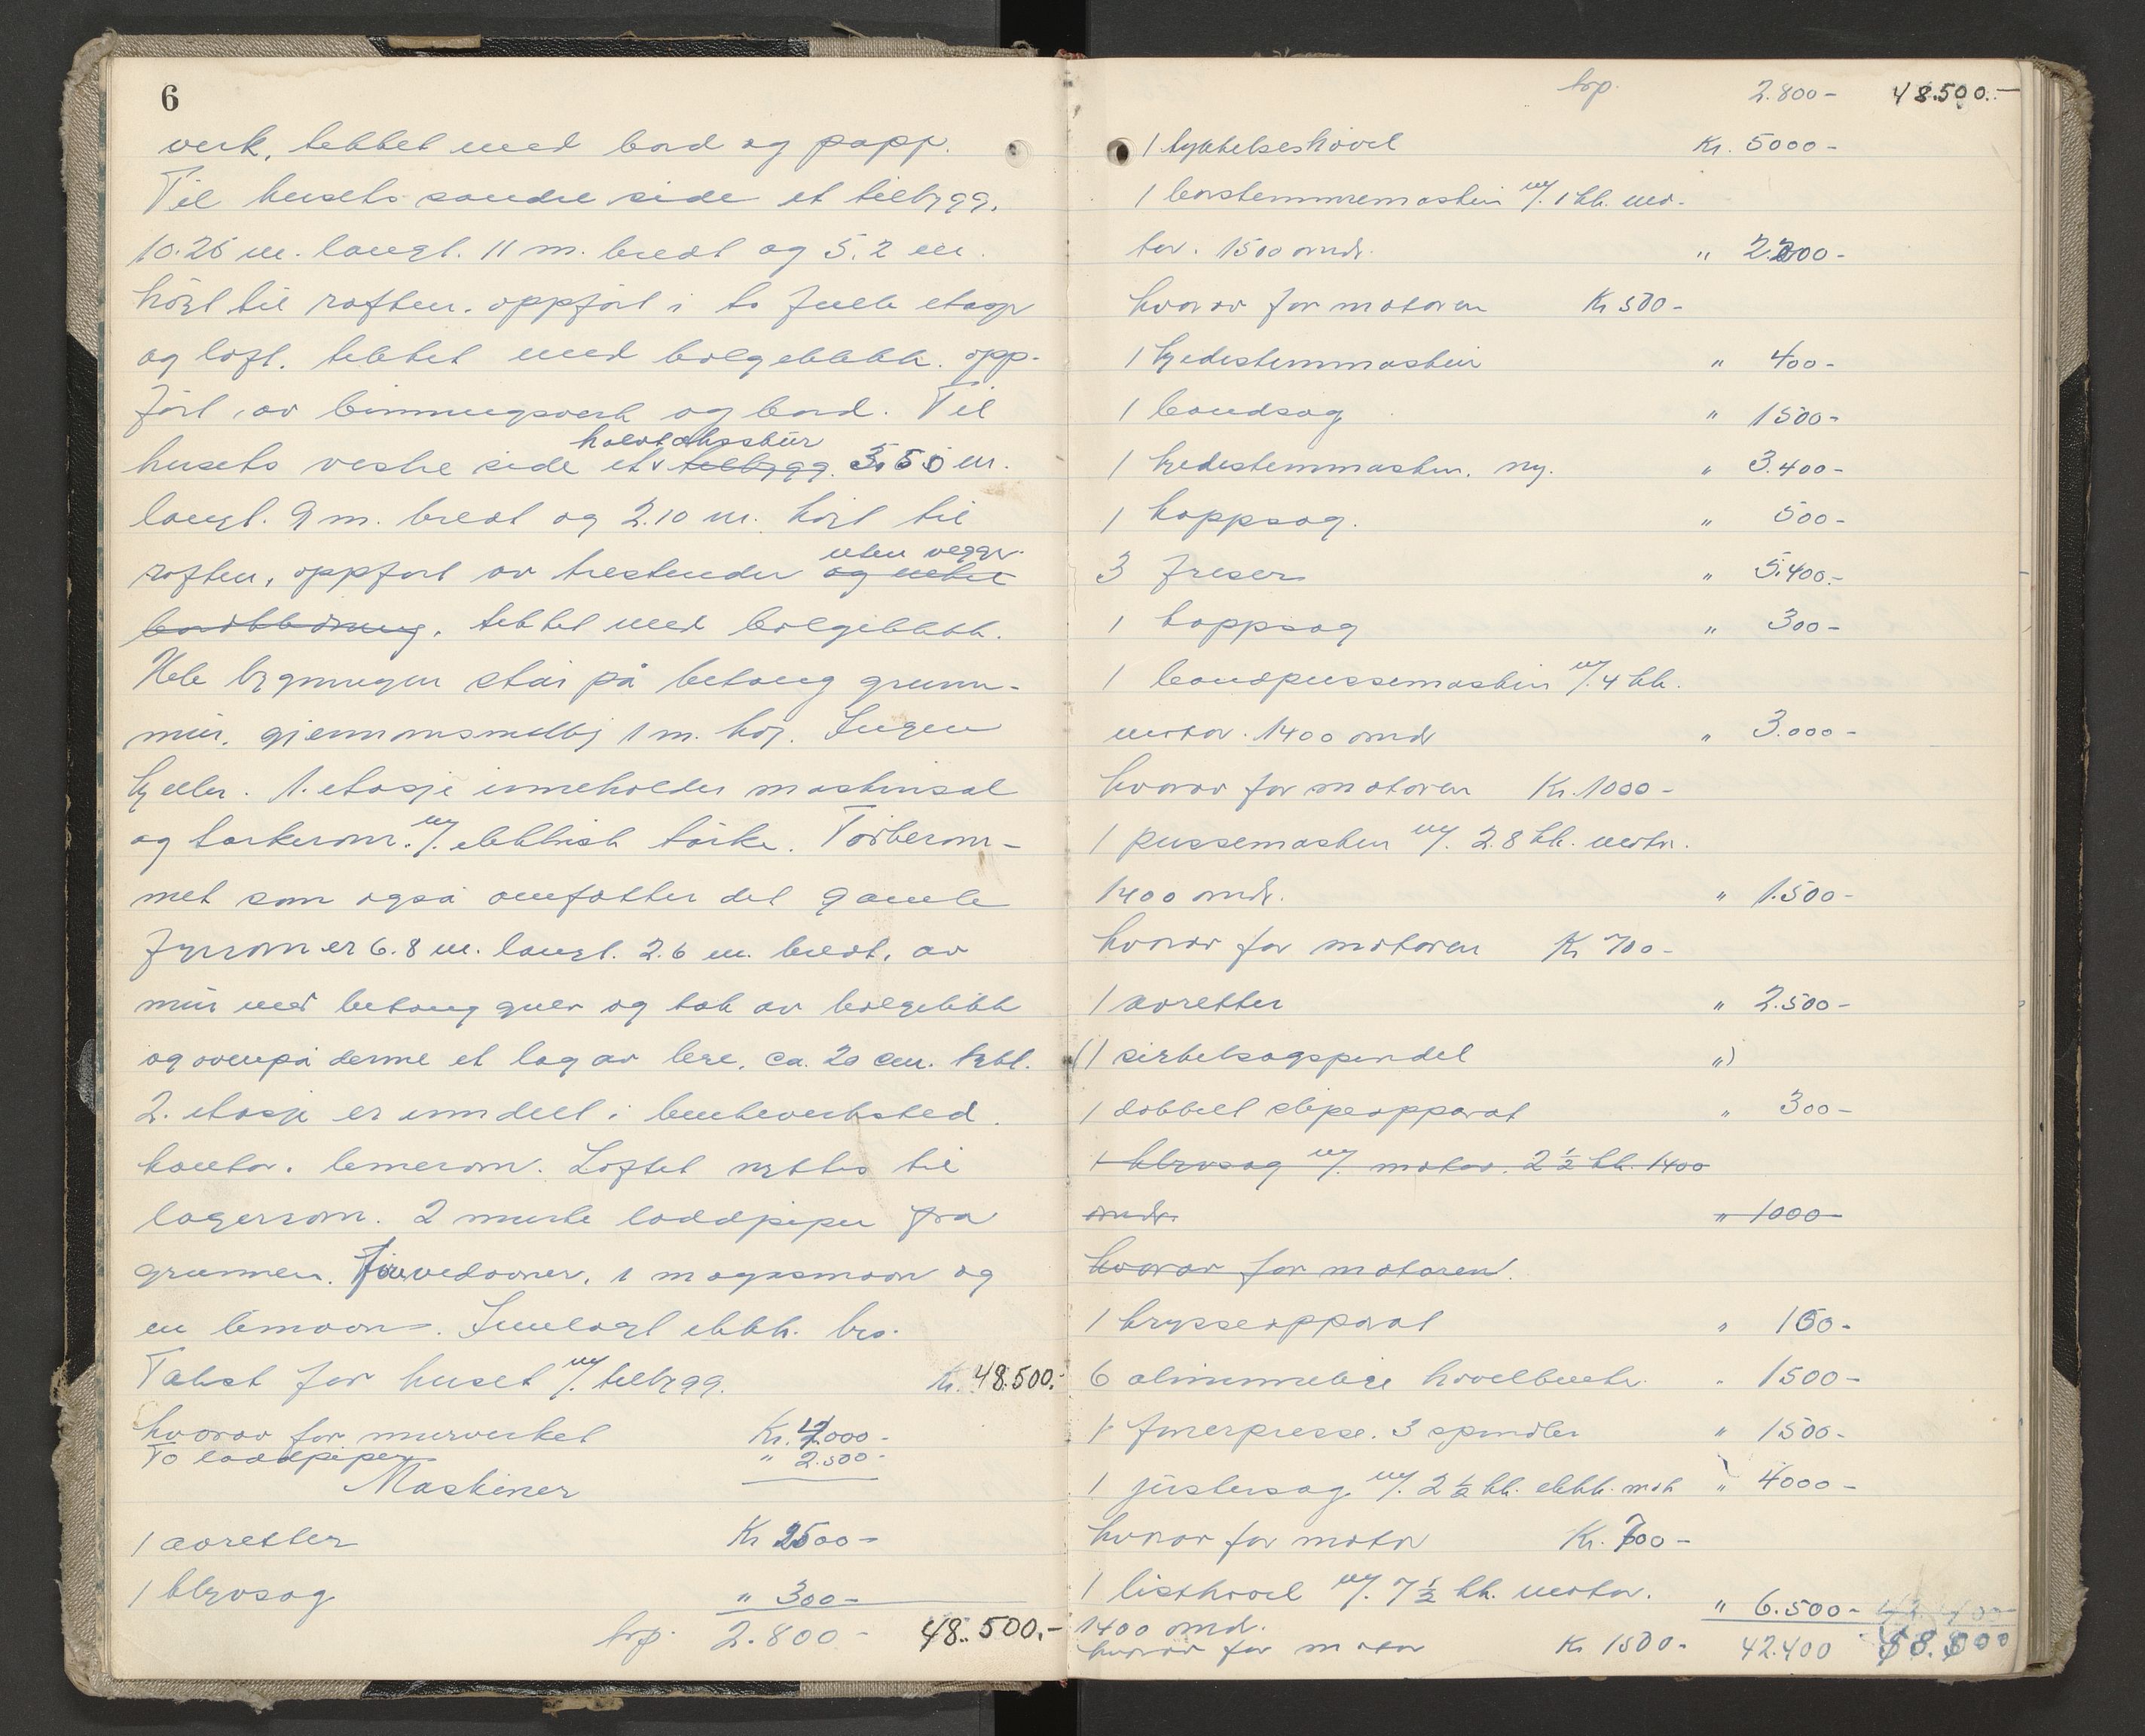 6
verk, tekket med bord og papp.
Til husets søndre side et tilbygg,
10.25 m. langt. 11 m. bredt og 5.2 m.
høyt til raften. oppført i to fulle etasjer
og loft. tekket med bølgeblikk. opp-
ført av binningsverk og bord. Til
halvtaksskur
husets vestre side et tilbygg. 3.50 m.
langt. 9 m. bredt og 2.10 m. høyt til
uten vegger.
raften, oppført av trestender og uten
bordkledning, tekket med bølgeblikk.
Hele bygningen står på betong grunn-
mur, gjennomsnittlig 1 m. høy. Ingen
kjeller. 1. etasje inneholder maskinsal
og tørkerom. m/. elektrisk tørke. Tørkerom-
met som også omfatter det gamle
fyrrom er 6.8 m. langt. 2.6 m. bredt, av
mur med betong gulv og tak av bølgeblikk
og ovenpå denne et lag av lere, ca. 20 cm. tykt.
2. etasje er inndelt i benkeverksted.
kontor. limerom. Loftet nyttes til
lagerrom. 2 murte loddpiper fra
grunnen. Fire vedovner, 1 magasinovn og
en limovn. Innlagt elektr. lys.
Takst for huset m/. tilbygg. Kr. 48.500.-
hvorav for murverket Kr. 12.000-
To loddpiper " 2.500-
Maskiner
1 avretter Kr 2500-
1 kløvsag " 300-
trp. 2.800- 48.500.-
trp. 2.800- 48.500.-
1 tykkelseshøvel Kr. 5000-
1 borstemmemaskin m/. 1 hk. mo-
tor. 1500 omdr. " 2.200-
hvorav for motoren Kr 500-
1 kjedestemmaskin " 400-
1 bandsag " 1500-
1 kjedestemmaskin. ny. " 3.400-
1 kappsag. " 500-
3 freser " 5.400.-
1 kappsag " 300-
1 bandpussemaskin m/. 4 hk.
motor. 1400 omdr " 3.000-
hvorav for motoren Kr. 1000-
1 pussemaskin m/. 2.8 hk. motor.
1400 omdr. " 1.500-
hvorav for motoren Kr 700-
1 avretter " 2.500-
(1 sirkelsagspindel ")
1 dobbelt slipeapparat " 300-
1 kløvsag m/. motor. 2 ½ hk. 1400
omdr. " 1000-
hvorav for motoren.
1 trykkeapparat " 100-
6 høvelbenker " 1500-
1 finerpresse. 3 spindler " 1500-
1 justersag m/. 2 ½ hk. elektr. mot " 4000-
hvorav for motor Kr. 700-
1 listhøvel m/. 7 ½ hk. motor. " 6.500-
1400 omdr.
hvorav for motor Kr 1500- 42.400